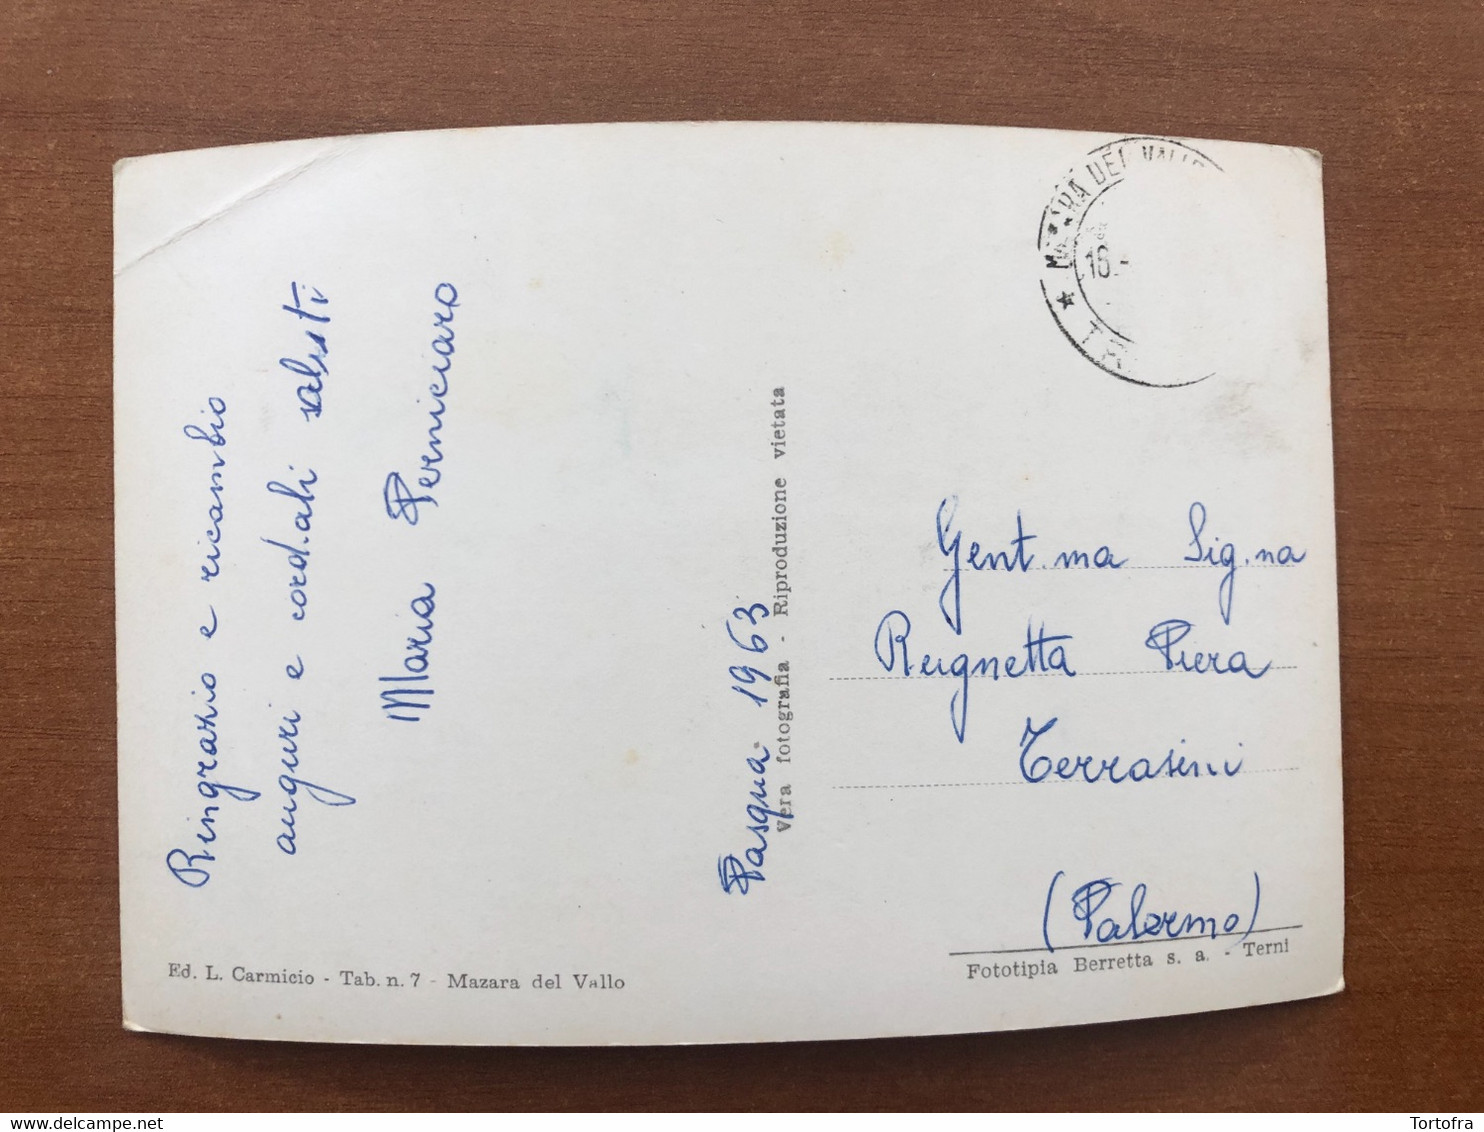 Ringrazio e ricambio
auguri e cordiali saluti
Maria Perniciaro
Pasqua 1963
Vera fotografia - Riproduzione vietata
Ed. L. Carmicio - Tab. n. 7 - Mazara del Vallo
MAZARA DEL VALLO
18.
★ TR
Gent.ma Sig.na
Rugnetta Piera
Terrasini
(Palermo)
Fototipia Berretta s. a. - Terni
delcampe.net
Tortofra